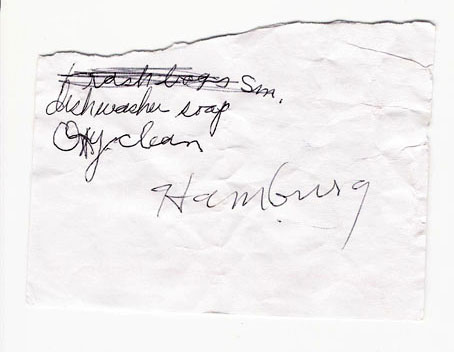 trash bags sm.
dishwasher soap
Oxy-clean
Hamburg